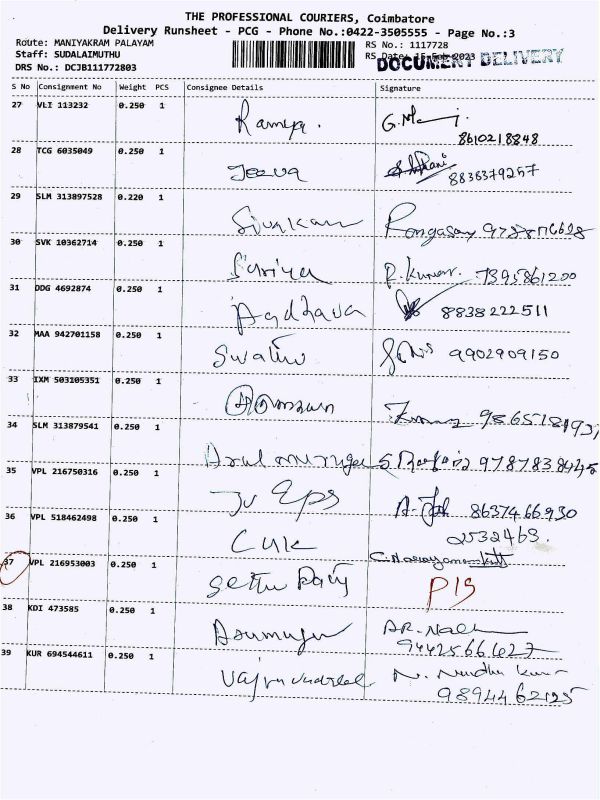 THE PROFESSIONAL COURIERS, Coimbatore
Delivery Runsheet - PCG - Phone No.:0422-3505555 - Page No.:3
Route: MANIYAKRAM PALAYAM RS No.: 1117728
Staff: SUDALAIMUTHU RS Date: 15-Feb-2023 DOCUMENT DELIVERY
DRS No.: DCJB111772803
S No Consignment No Weight PCS Consignee Details Signature
27 VLI 113232 0.250 1 Ramya. G.Mani
8610218848
28 TCG 6035049 0.250 1 Jeeva
8838379257
29 SLM 313897528 0.220 1 Sivakam Rangasamy
30 SVK 10362714 0.250 1 Suriya R.Kumar. 7395861200
31 DDG 4692874 0.250 1 Aadhava 8838222511
32 MAA 942701158 0.250 1 Swathi 9902909150
33 IXM 503105351 0.250 1
34 SLM 313879541 0.250 1 Arul murugan 9787838445
35 VPL 216750316 0.250 1 Tv Eps 8637466930
36 VPL 518462498 0.250 1 CUK 2532463.
C.Narayanankutty
37 VPL 216953003 0.250 1
38 KDI 473585 0.250 1 Arumugam AR.
9442566627
39 KUR 694544611 0.250 1 N. Nandha Kumar
9894462125